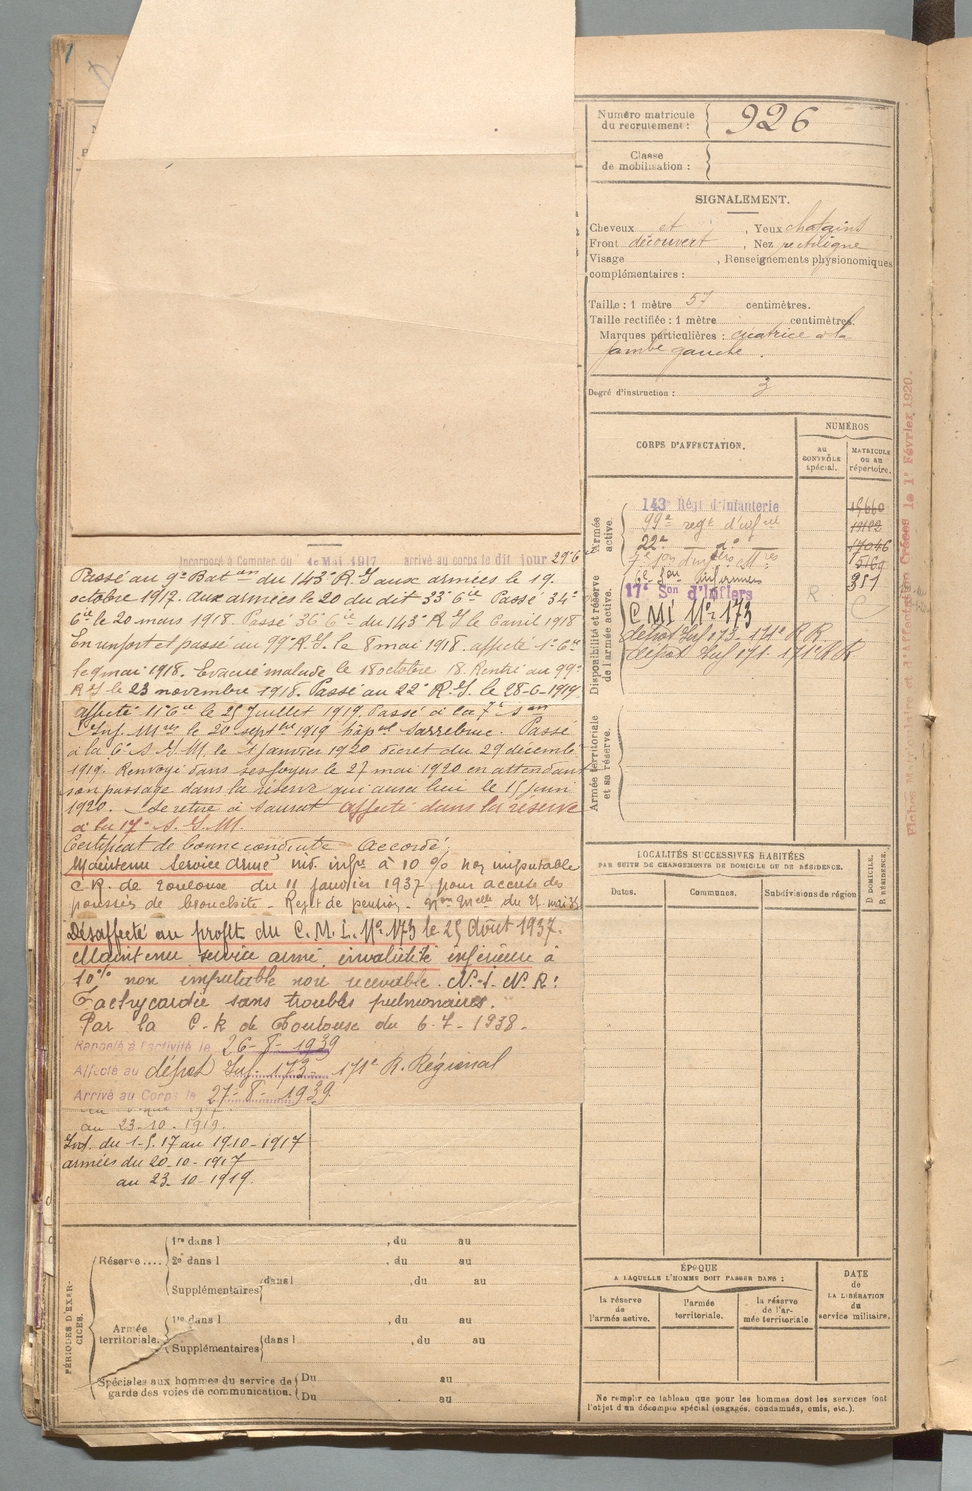 Numéro matricule du recrutement : 926
Classe de mobilisation :
SIGNALEMENT.
Cheveux et , Yeux chatains
Front découvert , Nez rectiligne
Visage , Renseignements physionomiques
complémentaires :
Taille : 1 mètre 57 centimètres.
Taille rectifiée : 1 mètre centimètres.
Marques particulières : cicatrice à la
jambe gauche.
Degré d'instruction : 3
CORPS D'AFFECTATION.
NUMÉROS
AU CONTRÔLE spécial.
MATRICULE OU AU répertoire.
Armée active.
143e Régt d'Infanterie
99e regt d'inftie
22e do
6e Son infirmiers
Disponibilité et réserve de l'armée active.
17e Son d'Infiers 351
C M I No 173
dépot Inf 173 - 171e R R
dépot Inf 171 - 171e R R
Armée territoriale et sa réserve.
LOCALITÉS SUCCESSIVES HABITÉES
PAR SUITE DE CHANGEMENTS DE DOMICILE OU DE RÉSIDENCE.
Dates.
Communes.
Subdivisions de région
D DOMICILE.
R RÉSIDENCE.
ÉPOQUE
A LAQUELLE L'HOMME DOIT PASSER DANS :
la réserve de l'armée active.
l'armée territoriale.
la réserve de l'armée territoriale
DATE de LA LIBÉRATION du service militaire.
Ne remplir ce tableau que pour les hommes dont les services font
l'objet d'un décompte spécial (engagés, condamnés, omis, etc.).
Incorporé à Compter du 1er Mai 1917 arrivé au corps le dit jour 29e 6
Passé au 9e Baton du 143e R.I aux armées le 19
octobre 1917. aux armées le 20 du dit 33e Cie Passé 34e
Cie le 20 mars 1918. Passé 36 Cie du 143e R.I le 6 avril 1918
En renfort et passé au 99e R.I. le 8 mai 1918. affecté 1e Cie
le 9 mai 1918. Evacué malade le 18 octobre 18. Rentré au 99e
R.I le 23 novembre 1918. Passé au 22e R.I. le 28-6-1919
affecté 11e Cie le 25 Juillet 1919. Passé à la 7e Son
Inf. Mres le 20 septbre 1919 hôpal Sarrebruc. Passé
à la 6e S.I.M. le 1 janvier 1920 décret du 29 décembre
1919. Renvoyé dans ses foyers le 27 mai 1920 en attendant
son passage dans la réserve qui aura lieu le 15 juin
1920. Se retire à Saurat Affecté dans la réserve
à la 17e S.I.M.
Certificat de bonne conduite Accordé.
Maintenu Service armé inv. infre à 10 % non imputable
C.R. de Toulouse du 11 janvier 1937 pour
Rejet de pension
Désaffecté au profit du C.M.I. No 173 le 25 Août 1937.
Maintenu service armé invalidité inférieure à
10% non imputable non recevable. N.I. N.R :
Tachycardie sans troubles pulmonaires.
Par la C.R de Toulouse du 6-7-1938.
Rappelé à l'activité le 26-8-1939
Affecté au dépot Inf. 173 - 171e R. Régional
Arrivé au Corps le 27-8-1939
au 23-10-1919.
Int. du 1-5-17 au 19-10-1917
armées du 20-10-1917
au 23-10-1919.
PÉRIODES D'EXERCICES.
Réserve....
1re dans l , du au
2e dans l , du au
Supplémentaires dans l , du au
Armée territoriale.
1re dans l , du au
Supplémentaires dans l , du au
Spéciales aux hommes du service de garde des voies de communication.
Du au
Du au